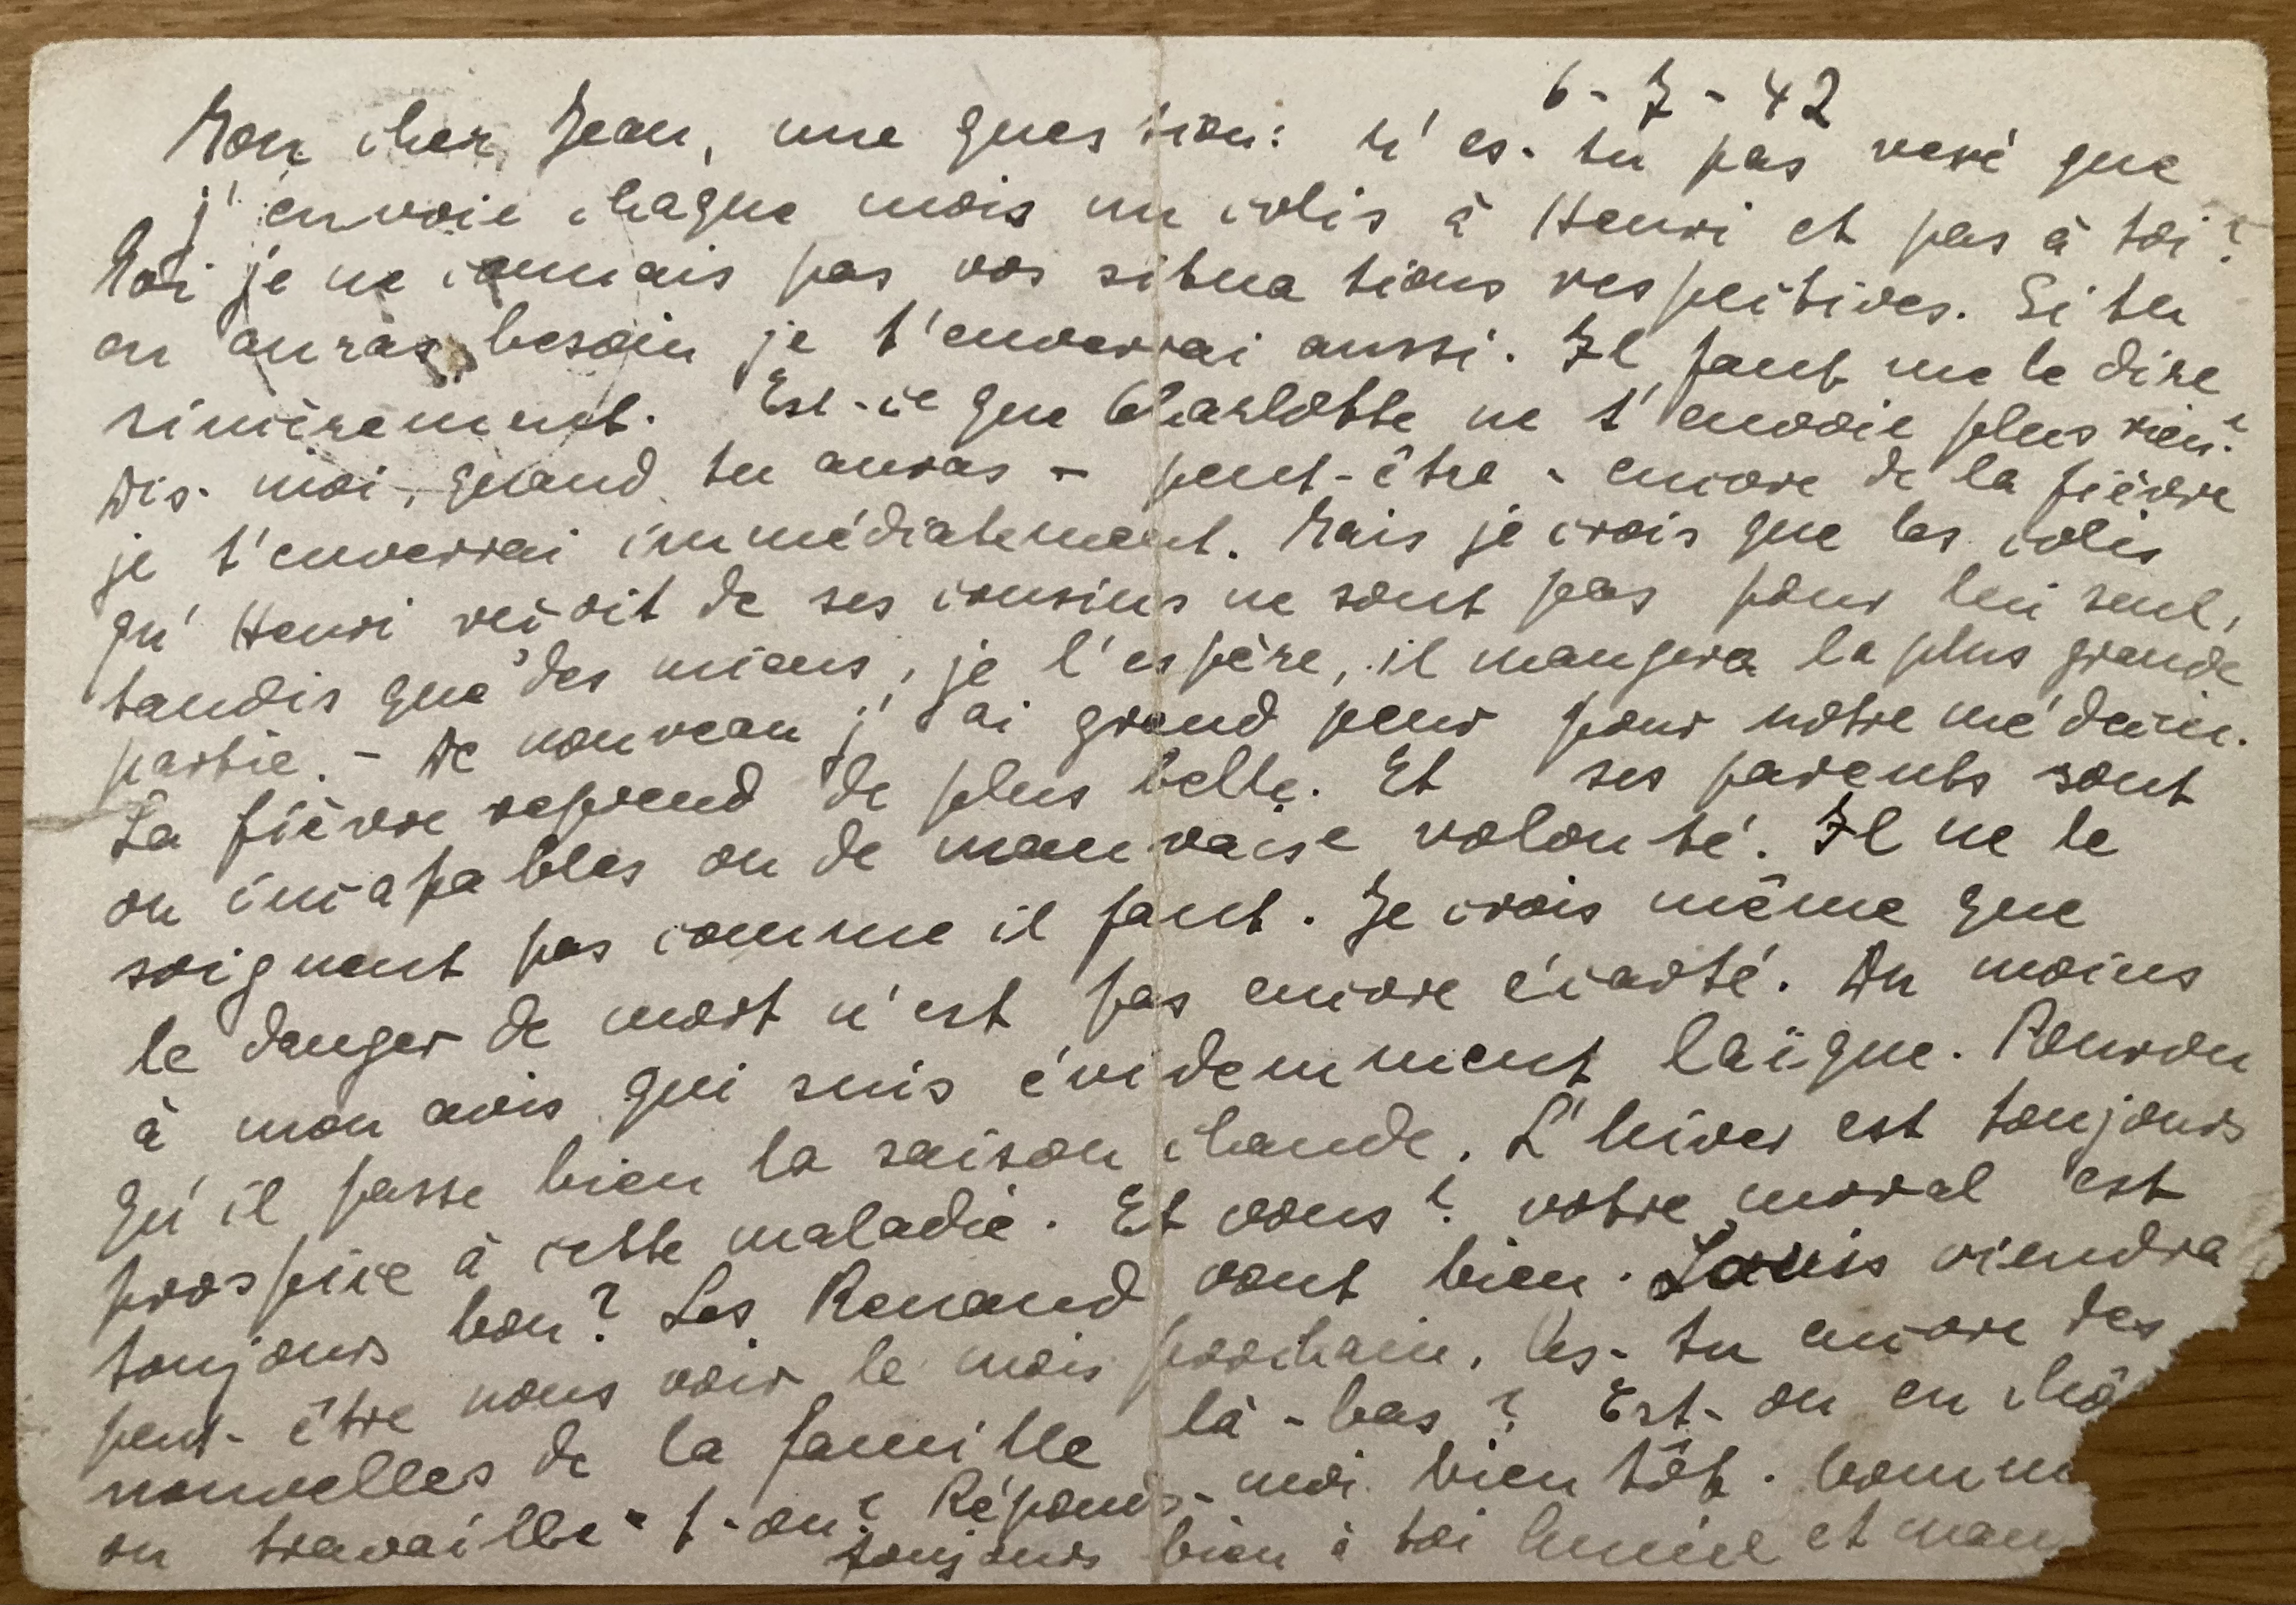 6-7-42
Mon cher Jean, une question: n'es-tu pas vexé que
j'envoie chaque mois un colis à Henri et pas à toi?
Moi je ne connais pas vos situations respectives. Si tu
en auras besoin je t'enverrai aussi. Il faut me le dire
sincèrement. Est-ce que Charlotte ne t'envoie plus rien?
Dis-moi, quand tu auras - peut-être - encore de la fièvre
je t'enverrai immédiatement. Mais je crois que les colis
qu'Henri reçoit de ses cousins ne sont pas pour lui seul,
tandis que des miens, je l'espère, il mangera la plus grande
partie. - De nouveau j'ai grand peur pour notre médecin.
La fièvre reprend de plus belle. Et ses parents sont
ou incapables ou de mauvaise volonté. Il ne le
soignent pas comme il faut. Je crois même que
le danger de mort n'est pas encore écarté. Du moins
à mon avis qui suis évidemment laïque. Pourvu
qu'il passe bien la saison chaude. L'hiver est toujours
prospice à cette maladie. Et vous? votre moral est
toujours bon? Les Renaud vont bien. Louis viendra
peut-être nous voir le mois prochain. As-tu encore des
nouvelles de la famille là-bas? Est-on en chô
ou travaille-t-on? Réponds-moi bientôt. Comm
toujours bien à toi Lucien et